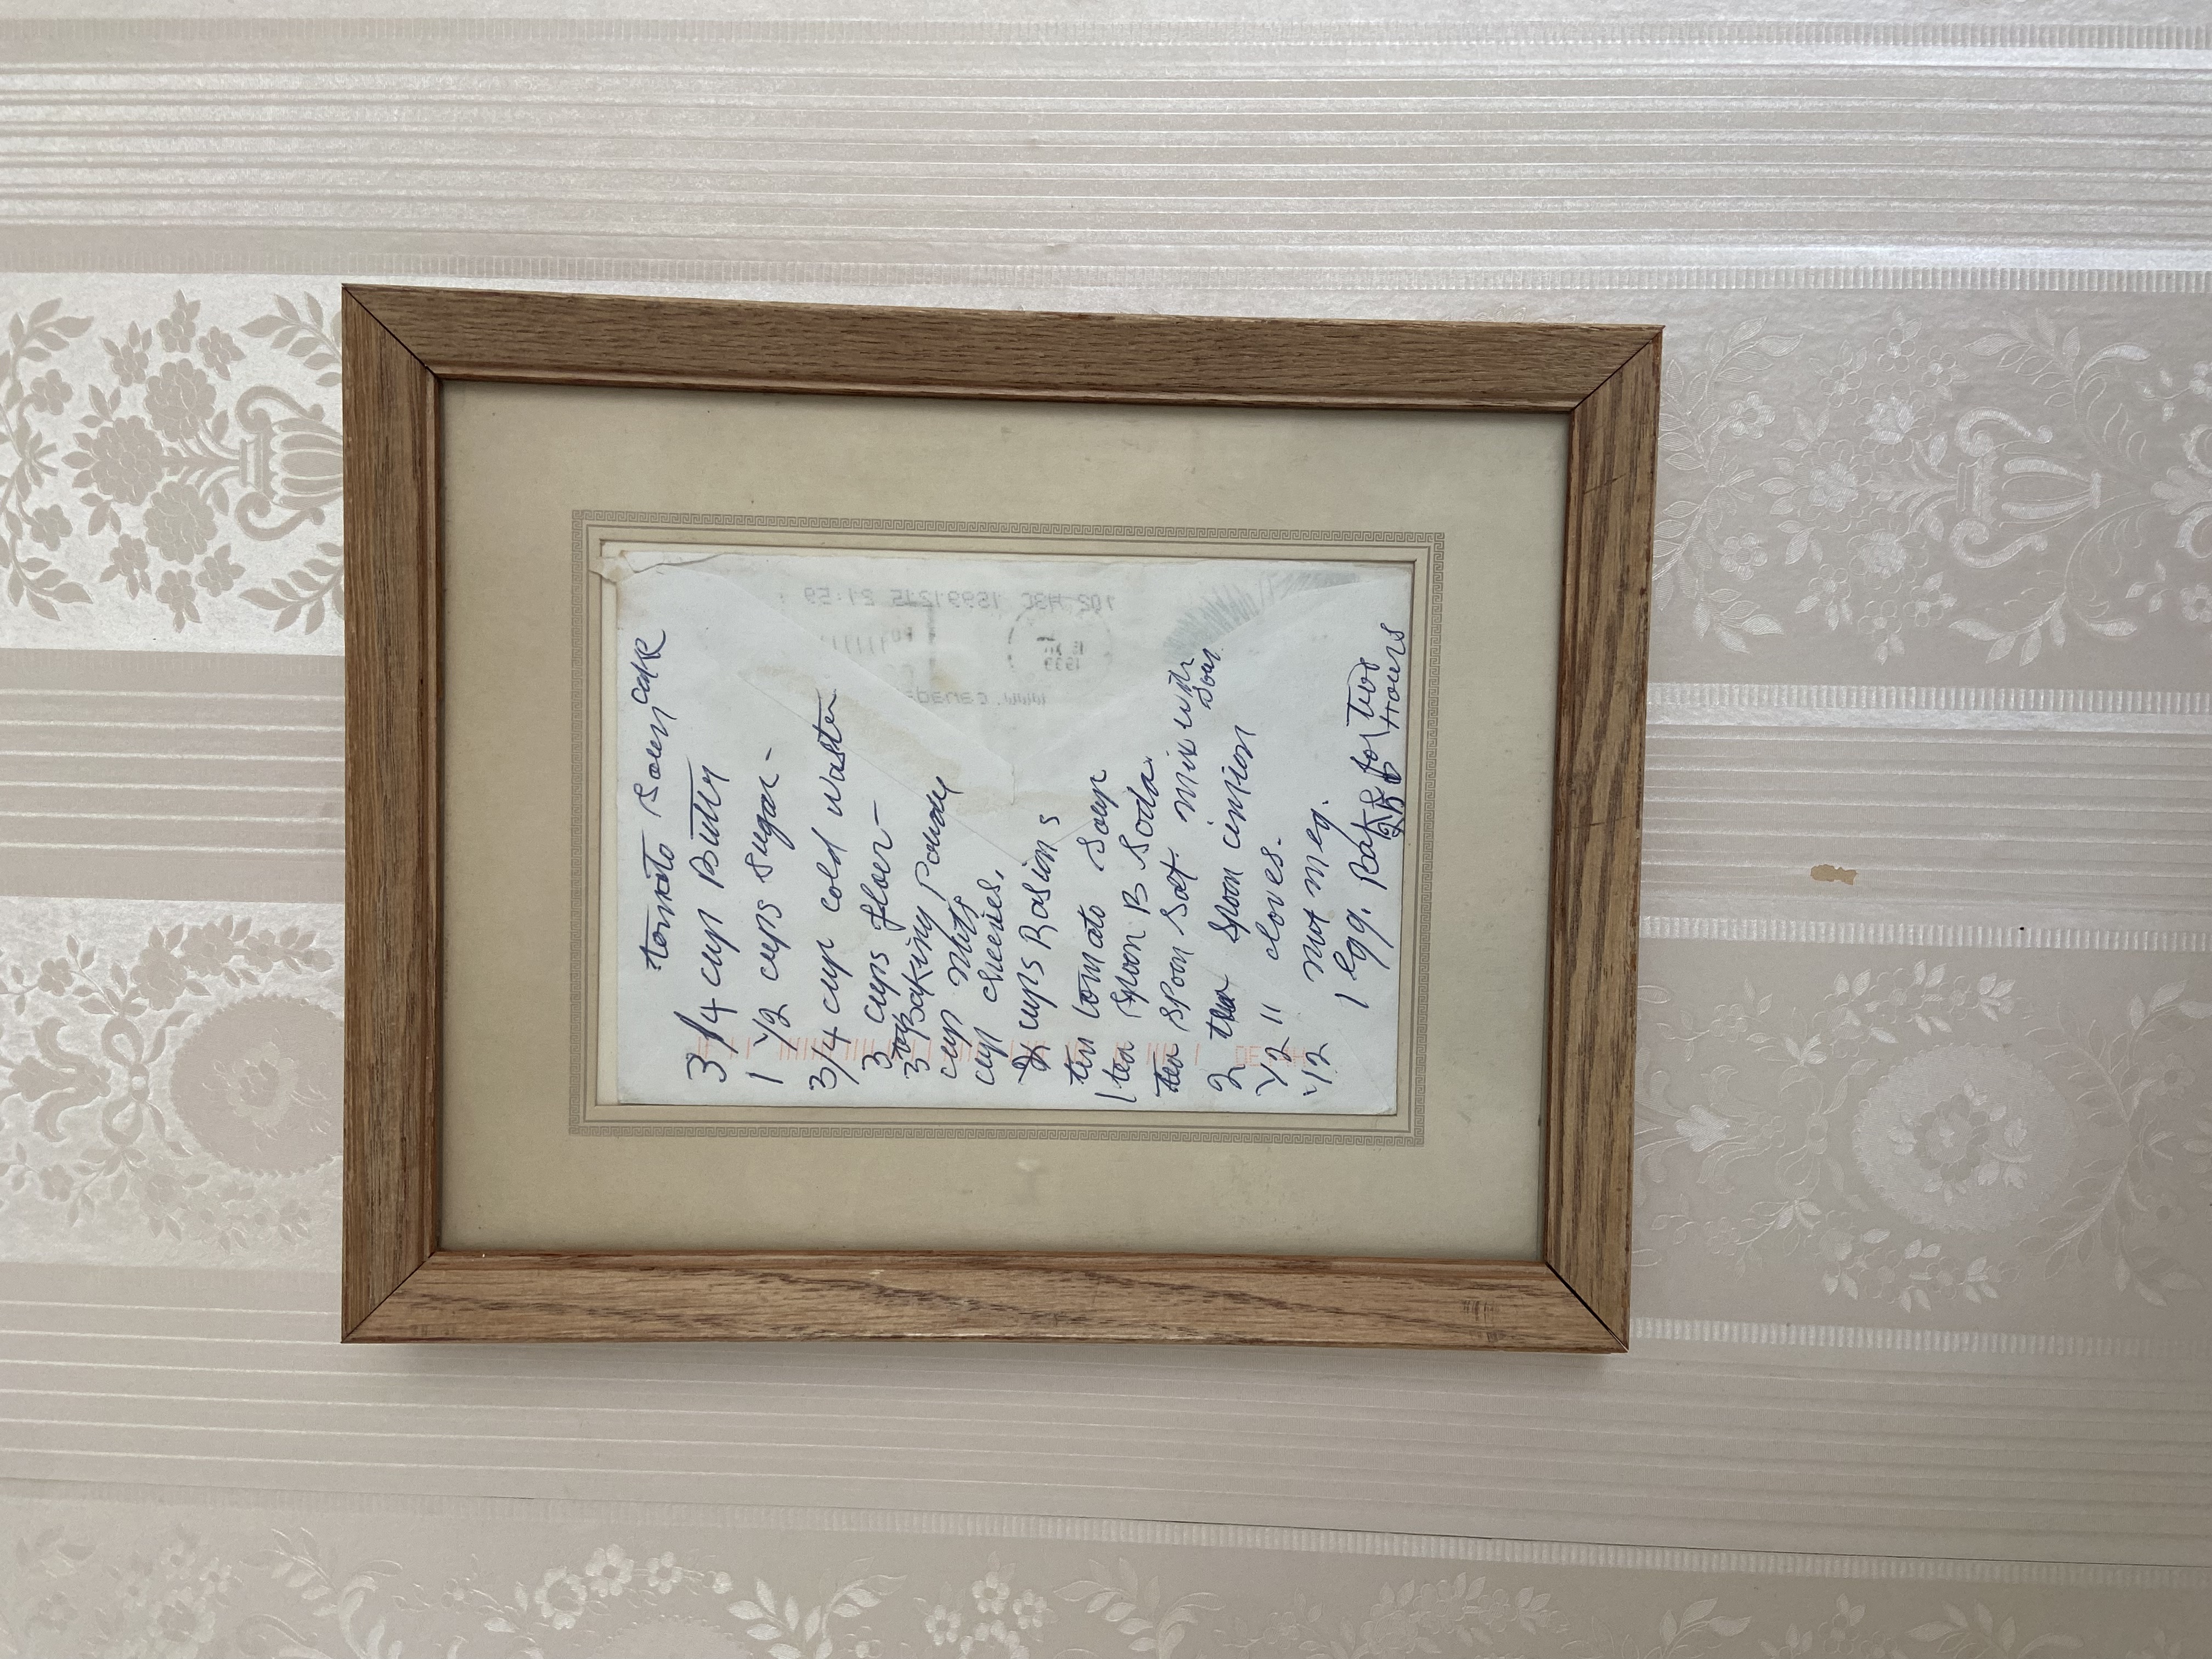 tomato Soup cake
3/4 cup Butter
1 1/2 cups sugar -
3/4 cup cold water
3 cups flower -
3 Baking Powder
cup nuts
cup cherries.
2 cups Rasins
tin tomato Soup
1 tea spoon B Soda
tea spoon Salt. Mix with Soup
2 tea spoon cinnion
1/2 " cloves.
1/2 nut meg.
1 egg. Bake for Two Hours
102 H3C 19991215 21:59